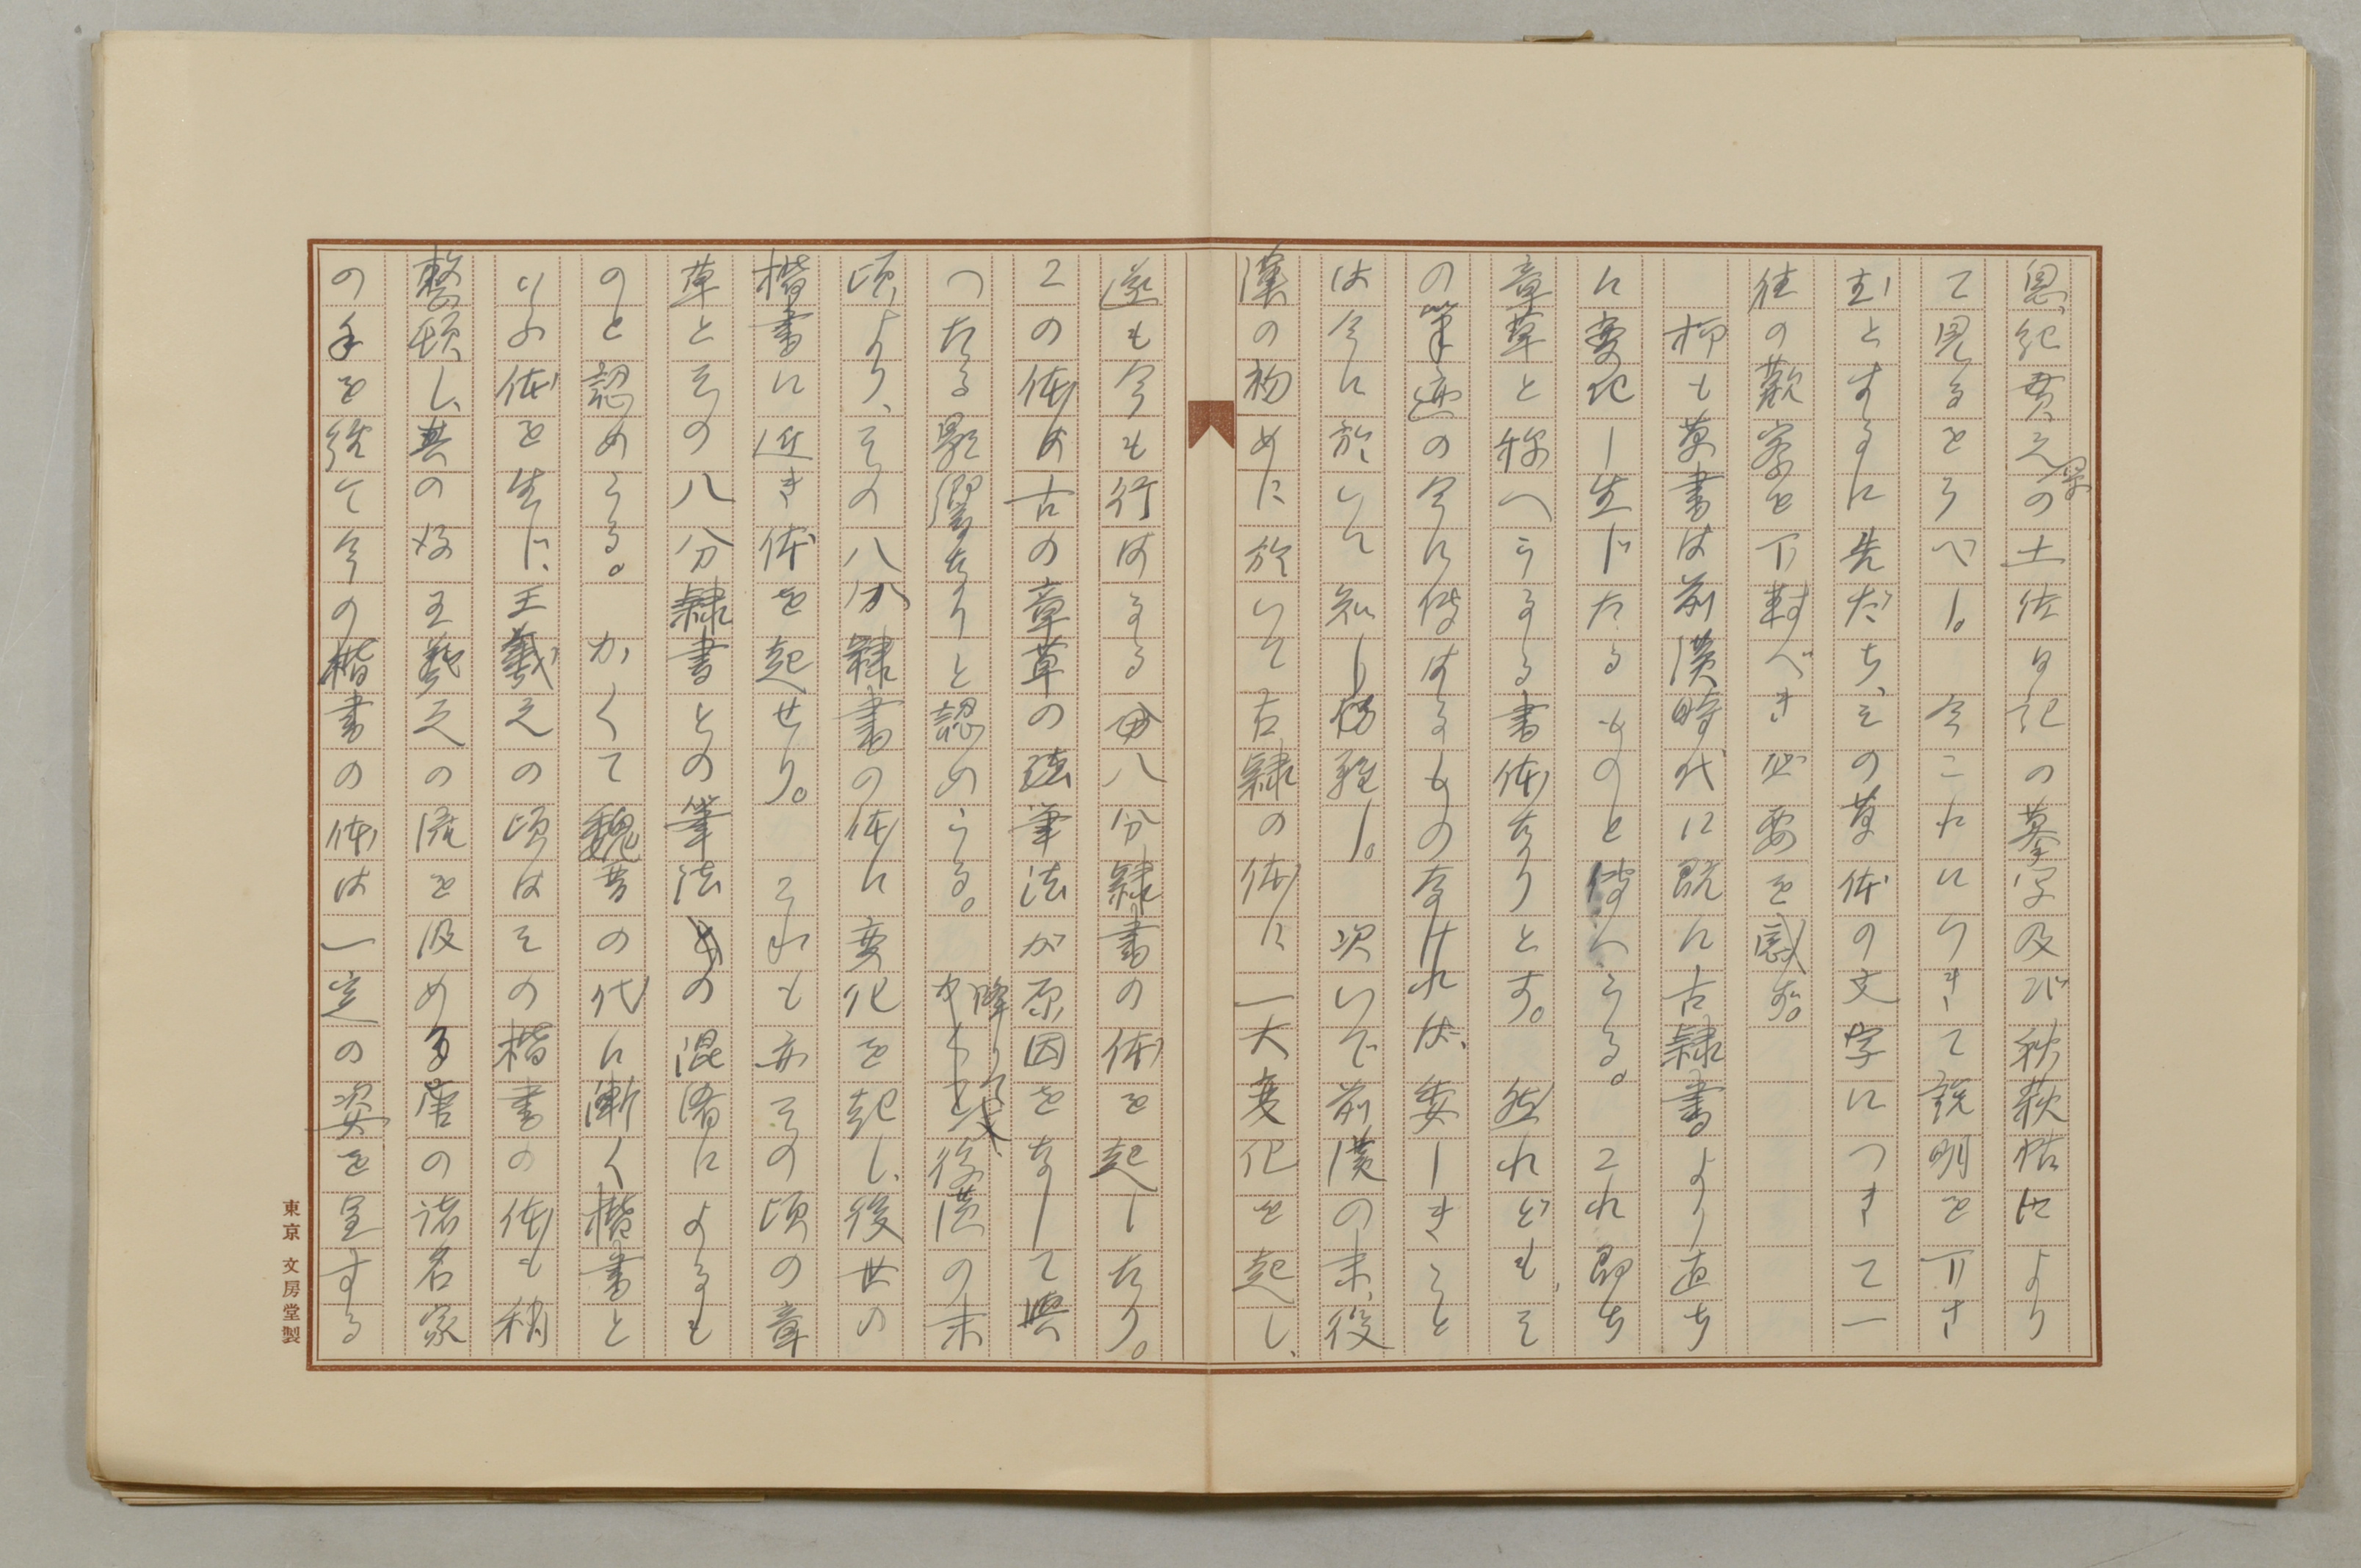 恩、紀貫之の筆土佐日記の摹写及び秋萩帖により
て見るをうべし。　今これにつきて説明を下さ
むとするに先だち、その草体の文字につきて一
往の観察を下すべき必要を感ず。
　抑も草書は前漢時代に既に古隷書より直ち
に変化し生じたるものと伝へらる。　これ即ち
章草と称へらるる書体なりとす。　然れども、そ
の筆蹟の今に伝はるもの無ければ、委しきこと
は今に於いて知り難し。　次いで前漢の末、後
漢の初めに於いて古隷の体に一大変化を起し、
遂も今も行はるる八分隷書の体を起したり。
この体は古の章草の筆法が原因をなして与
つたる影響なりと認めらる。　降りて後漢の末
頃より、その八分隷書の体に変化を起し、後世の
楷書に近き体を起せり。　これも亦その頃の章
草とその八分隷書との筆法の混淆によるも
のと認めらる。　かくて魏晋の代に漸く楷書と
いふ体を生じ、王羲之の頃はその楷書の体も稍
整頓し、其の後王羲之の流を汲める唐の諸名家
の手を経て今の楷書の体は一定の姿を呈する
東京　文房堂製